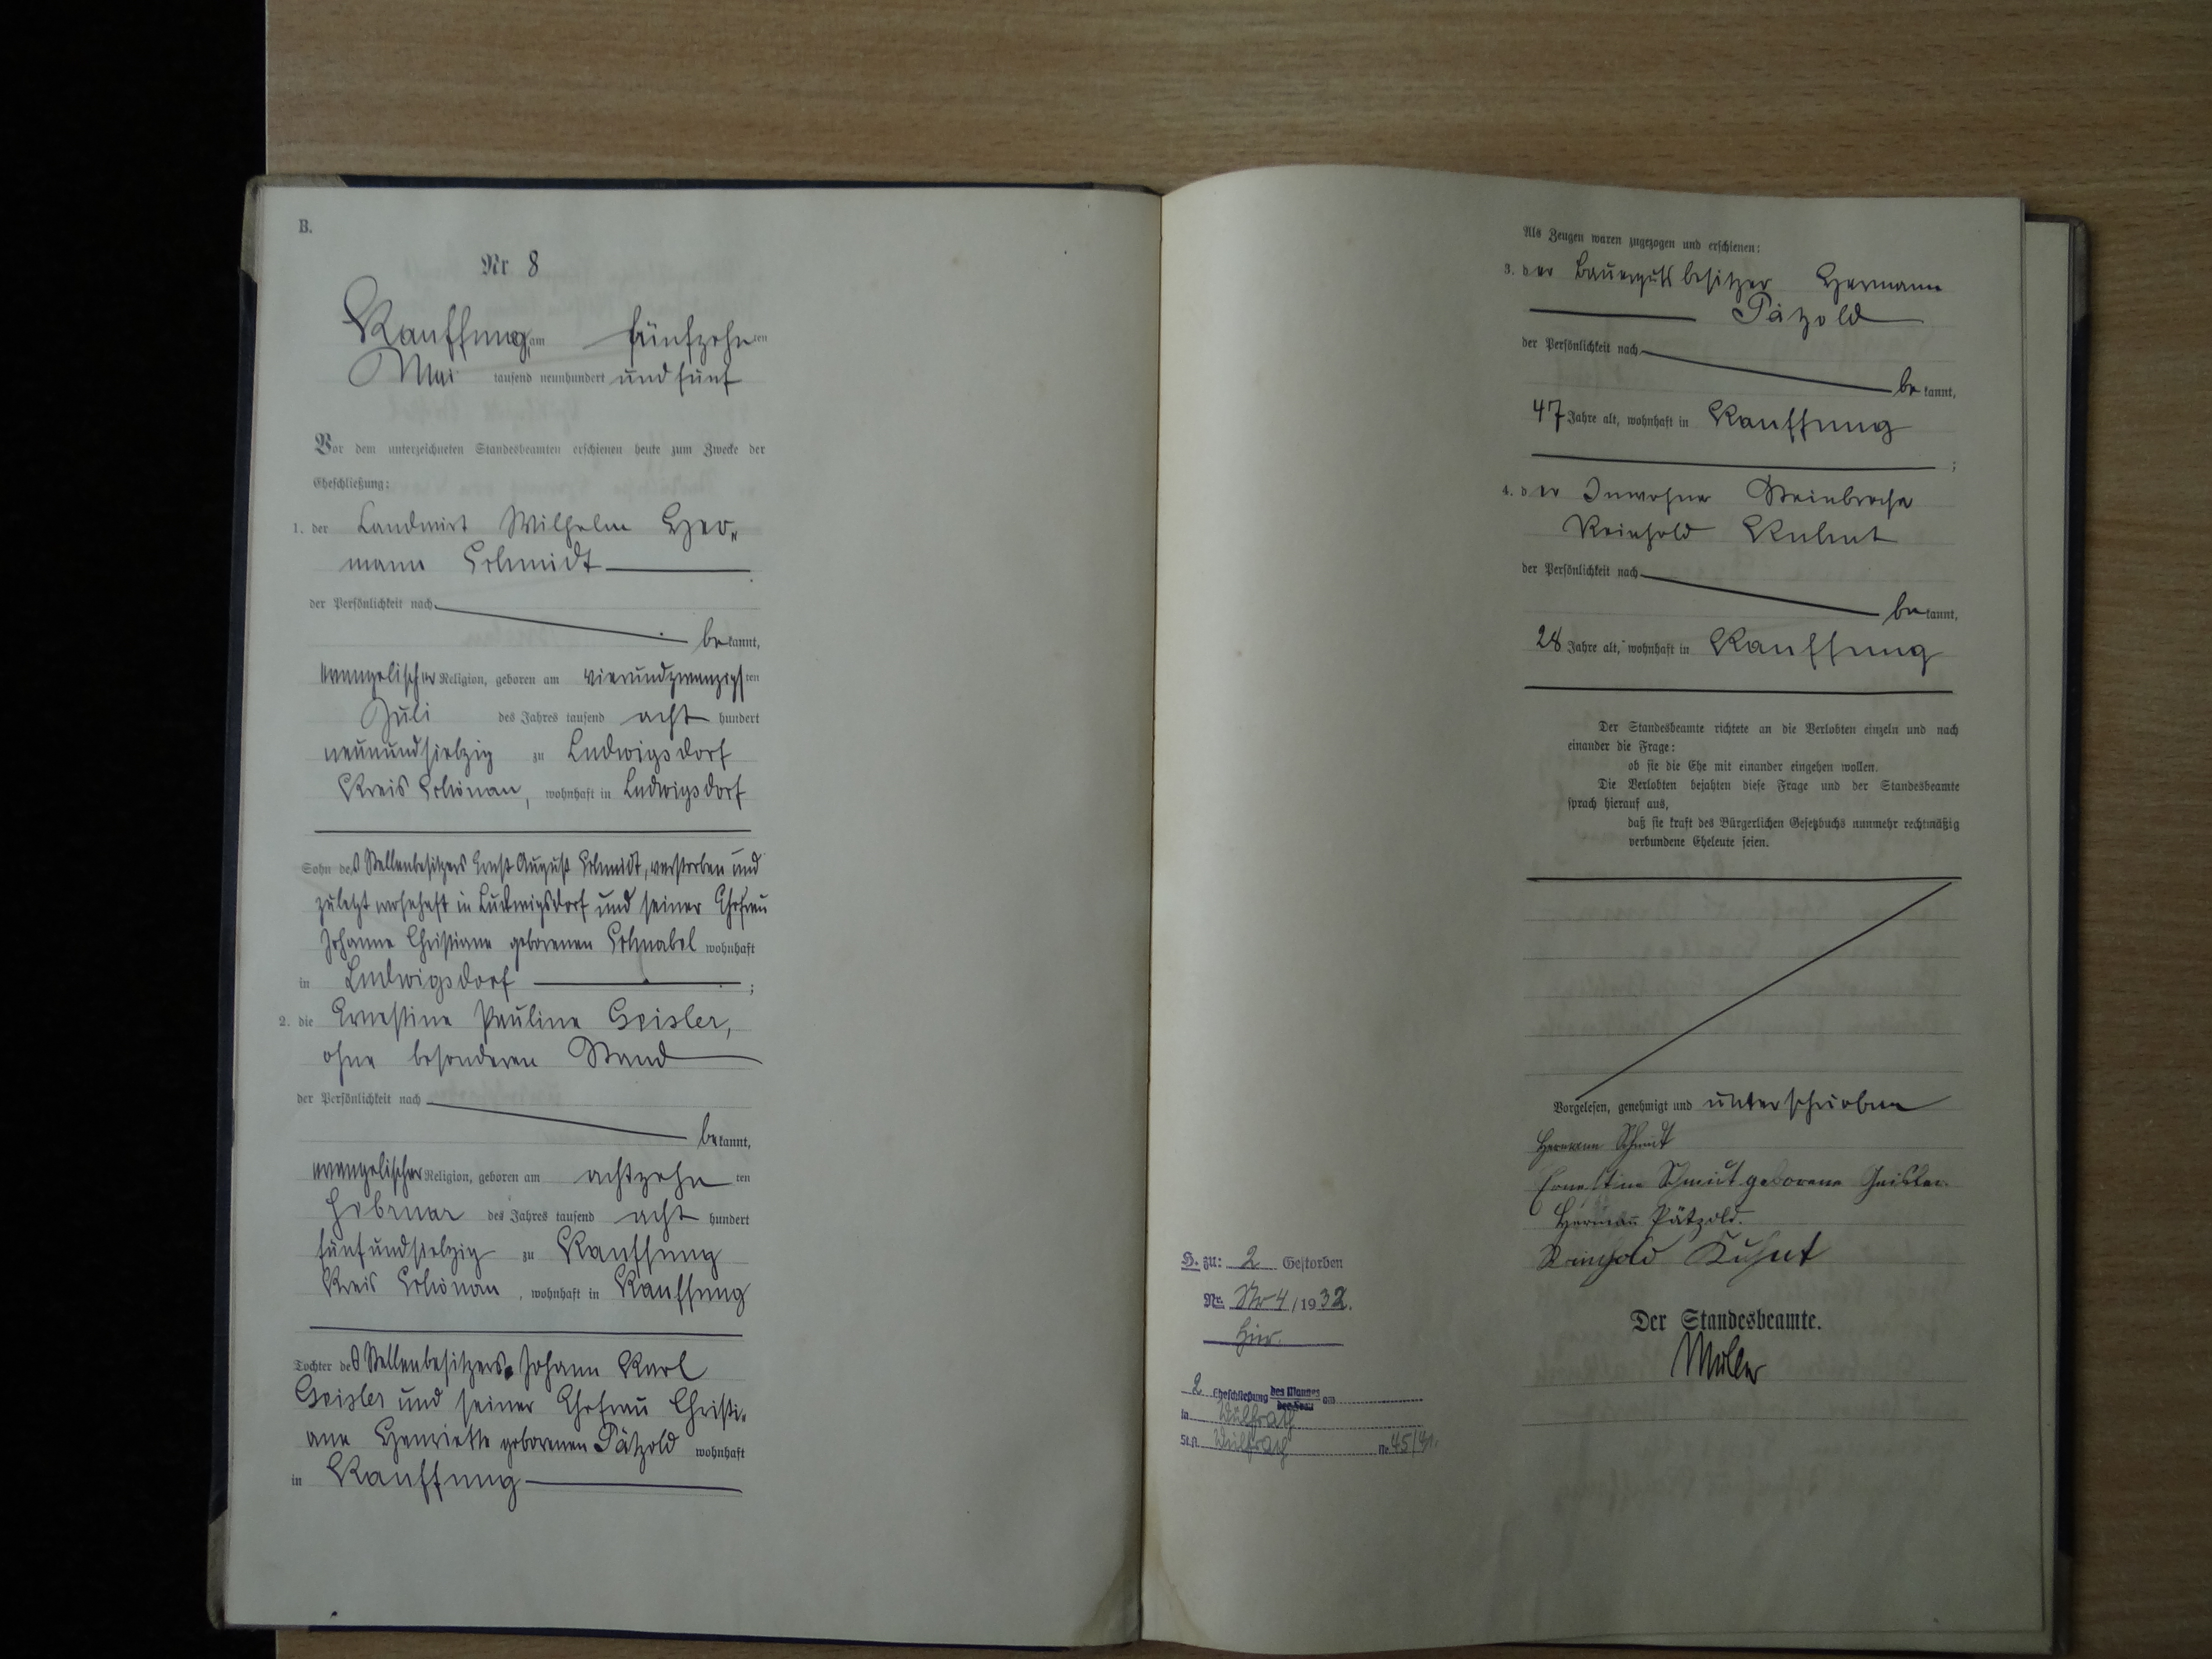 B.
Nr 8
Kauffung, am fünfzehnten
Mai tausend neunhundert und fünf
Vor dem unterzeichneten Standesbeamten erschienen heute zum Zwecke der
Eheschließung:
1. der Landwirt Wilhelm Her-
mann Schmidt
der Persönlichkeit nach
bekannt,
evangelischer Religion, geboren am vierundzwanzigsten
Juli des Jahres tausend acht hundert
neunundsiebzig zu Ludwigsdorf
Kreis Schönau, wohnhaft in Ludwigsdorf
Sohn des Stellenbesitzers Ernst August Schmidt, verstorben und
zuletzt wohnhaft in Ludwigsdorf und seiner Ehefrau
Johanne Christiane geborenen Schnabel wohnhaft
in Ludwigsdorf ;
2. die Ernestine Pauline Geisler,
ohne besonderen Stand
der Persönlichkeit nach
bekannt,
evangelischer Religion, geboren am achtzehnten
Februar des Jahres tausend acht hundert
fünfundsiebzig zu Kauffung
Kreis Schönau, wohnhaft in Kauffung
Tochter des Stellenbesitzers Johann Karl
Geisler und seiner Ehefrau Christi-
ane Henriette geborenen Pätzold wohnhaft
in Kauffung
Als Zeugen waren zugezogen und erschienen:
3. der Bauergutsbesitzer Hermann
Pätzold
der Persönlichkeit nach
bekannt,
47 Jahre alt, wohnhaft in Kauffung
;
4. der Inwohner
Reinhold Kuhnt
der Persönlichkeit nach
bekannt,
28 Jahre alt, wohnhaft in Kauffung
Der Standesbeamte richtete an die Verlobten einzeln und nach
einander die Frage:
ob sie die Ehe mit einander eingehen wollen.
Die Verlobten bejahten diese Frage und der Standesbeamte
sprach hierauf aus,
daß sie kraft des Bürgerlichen Gesetzbuchs nunmehr rechtmäßig
verbundene Eheleute seien.
Vorgelesen, genehmigt und unterschrieben
Hermann Schmidt
Ernestine Schmidt geborene Geisler
Hermann Pätzold.
Reinhold Kuhnt
Der Standesbeamte.
Müller
H. zu: 2 Gestorben
Nr. No 4/1932.
hier.
2 Eheschließung des Mannes der Frau am
in Wülfrath
St.A. Wülfrath Nr.